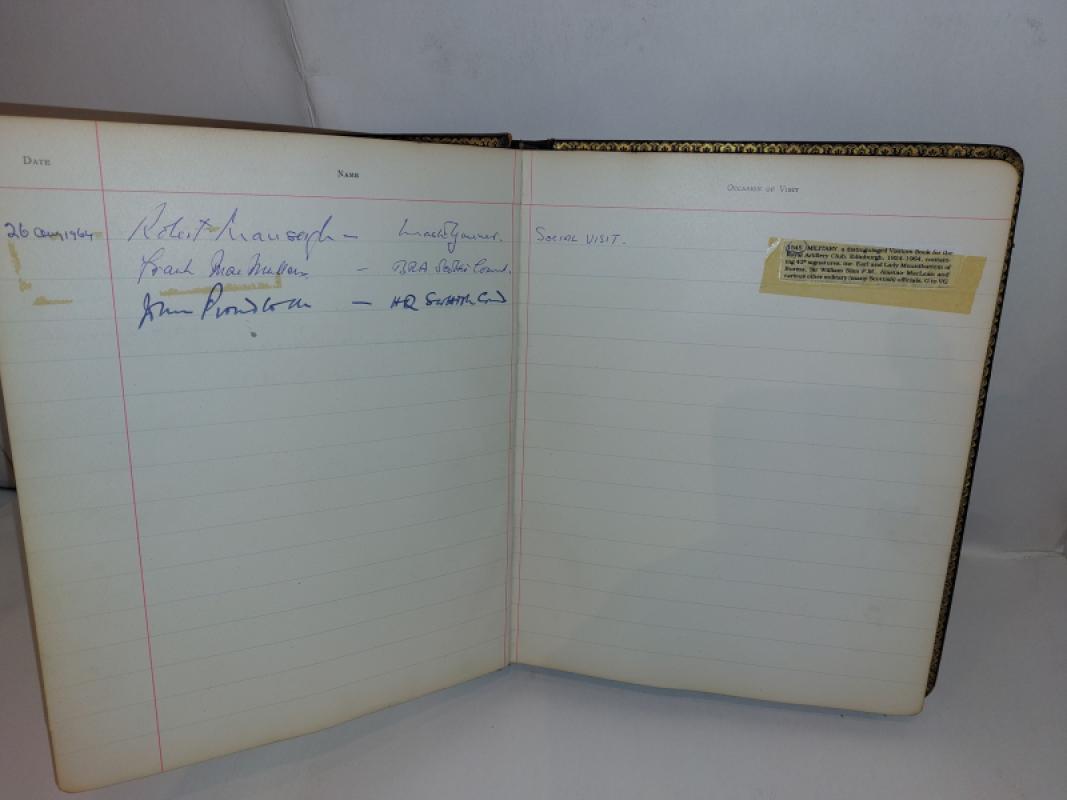 DATE
NAME
OCCASION OF VISIT
26 Aug 1964 Robert Mansergh – Master Gunner. SOCIAL VISIT.
Frank MacMullen – BRA Scottish Comd.
John – HQ Scottish Cmd
1845 MILITARY. a distinguished Visitors Book for the
Royal Artillery Club, Edinburgh, 1924-1964, contain-
ing signatures, inc Earl and Lady Mountbatten of
Burma, Sir William Slim F.M., Alastair MacLean and
various other military (many Scottish) officials, G to VG